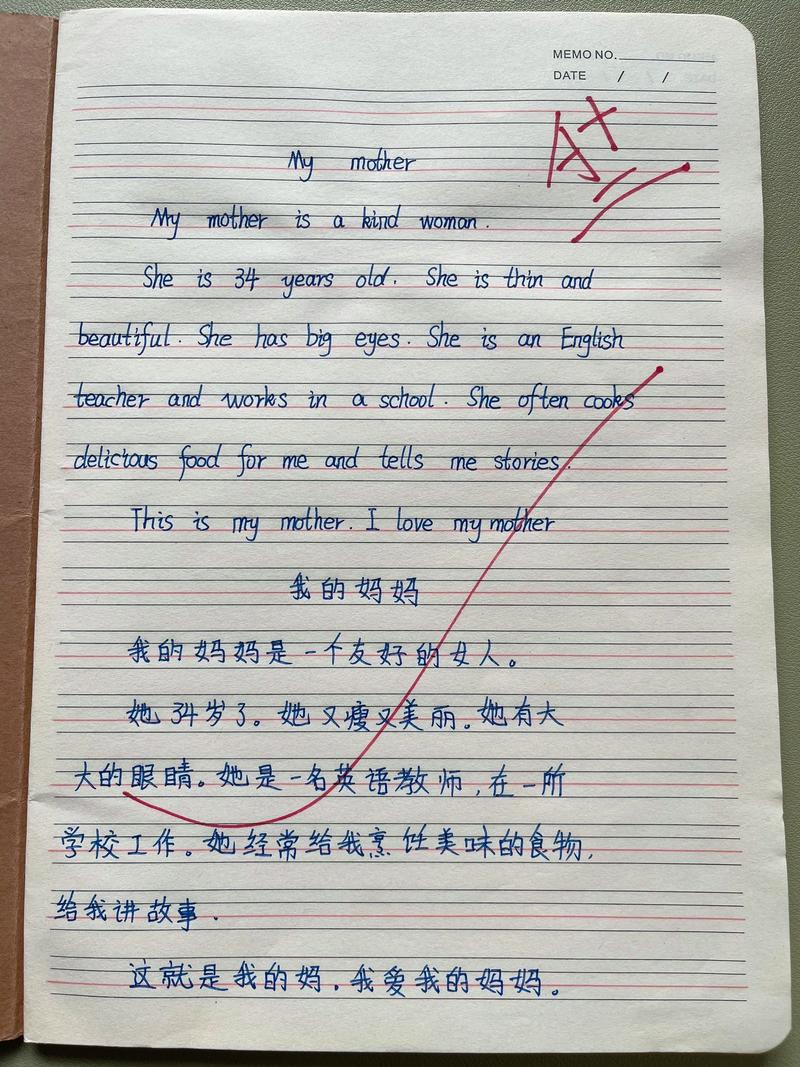 MEMO NO.
DATE / /
A+
My mother
My mother is a kind woman.
She is 34 years old. She is thin and
beautiful. She has big eyes. She is an English
teacher and works in a school. She often cooks
delicious food for me and tells me stories.
This is my mother. I love my mother
我的妈妈
我的妈妈是一个友好的女人。
她34岁了。她又瘦又美丽。她有大
大的眼睛。她是一名英语教师,在一所
学校工作。她经常给我烹饪美味的食物,
给我讲故事.
这就是我的妈.我爱我的妈妈。